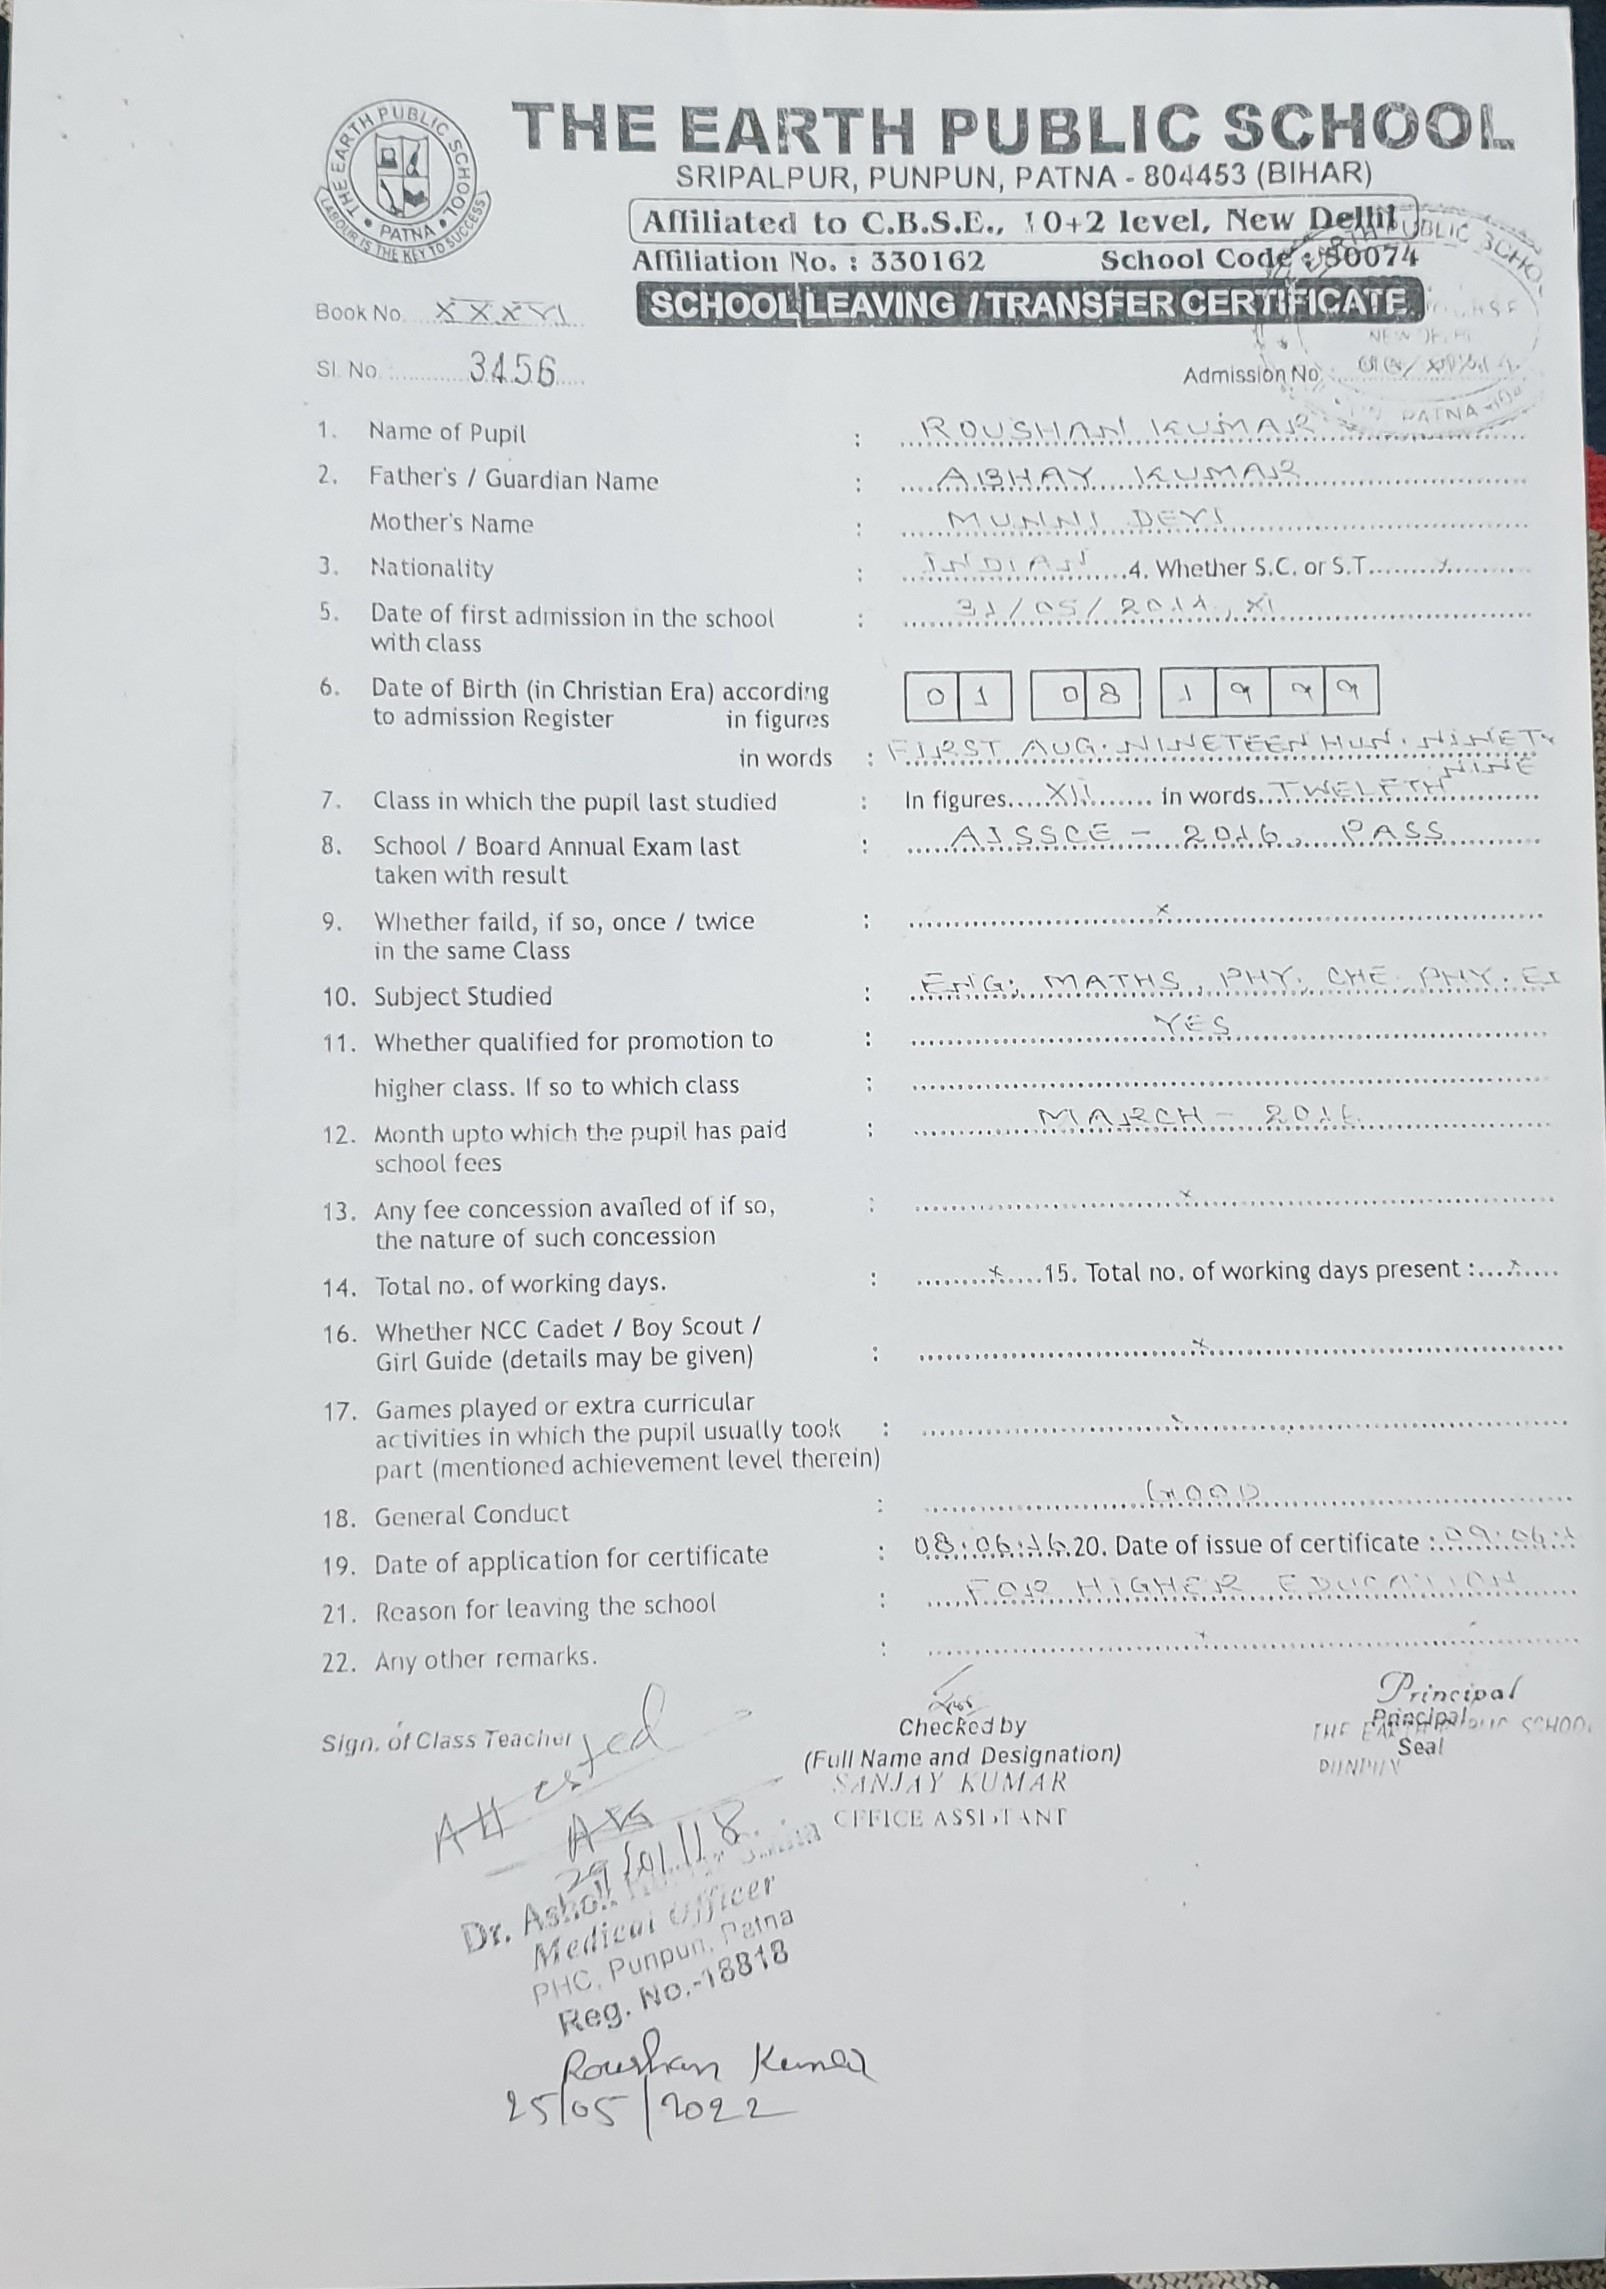 THE EARTH PUBLIC SCHOOL
PATNA
LABOUR IS THE KEY TO SUCCESS
THE EARTH PUBLIC SCHOOL
SRIPALPUR, PUNPUN, PATNA - 804453 (BIHAR)
Affiliated to C.B.S.E., 10+2 level, New Delhi
Affiliation No. : 330162 School Code : 50074
SCHOOL LEAVING / TRANSFER CERTIFICATE
Book No. XXXVI
Sl. No. 3456
Admission No.
PUBLIC SCHOOL
NEW DELHI
PATNA
1. Name of Pupil : ROUSHAN KUMAR
2. Father's / Guardian Name : ABHAY KUMAR
Mother's Name : MUNNI DEVI
3. Nationality : INDIAN 4. Whether S.C. or S.T. x
5. Date of first admission in the school : 31/05/2014, XI
with class
6. Date of Birth (in Christian Era) according 01 08 1999
to admission Register in figures
in words : FIRST AUG. NINETEEN HUN. NINETY
NINE
7. Class in which the pupil last studied : In figures XII in words TWELFTH
8. School / Board Annual Exam last : AISSCE - 2016, PASS
taken with result
9. Whether faild, if so, once / twice : x
in the same Class
10. Subject Studied : ENG, MATHS, PHY, CHE PHY. E
11. Whether qualified for promotion to : YES
higher class. If so to which class :
12. Month upto which the pupil has paid : MARCH - 2016
school fees
13. Any fee concession availed of if so, : x
the nature of such concession
14. Total no. of working days. : x 15. Total no. of working days present : x
16. Whether NCC Cadet / Boy Scout /
Girl Guide (details may be given) : x
17. Games played or extra curricular
activities in which the pupil usually took :
part (mentioned achievement level therein)
18. General Conduct : GOOD
19. Date of application for certificate : 08:06:16 20. Date of issue of certificate : 09:06:1
21. Reason for leaving the school : FOR HIGHER EDUCATION
22. Any other remarks. : x
Sign. of Class Teacher
Checked by
(Full Name and Designation)
SANJAY KUMAR
OFFICE ASSISTANT
Principal
Principal
THE EARTH PUBLIC SCHOOL
Seal
PUNPUN
Attested
29/01/18
Dr. Ashok
Medical Officer
PHC, Punpun, Patna
Reg. No.-18818
Roushan Kumar
25/05/2022